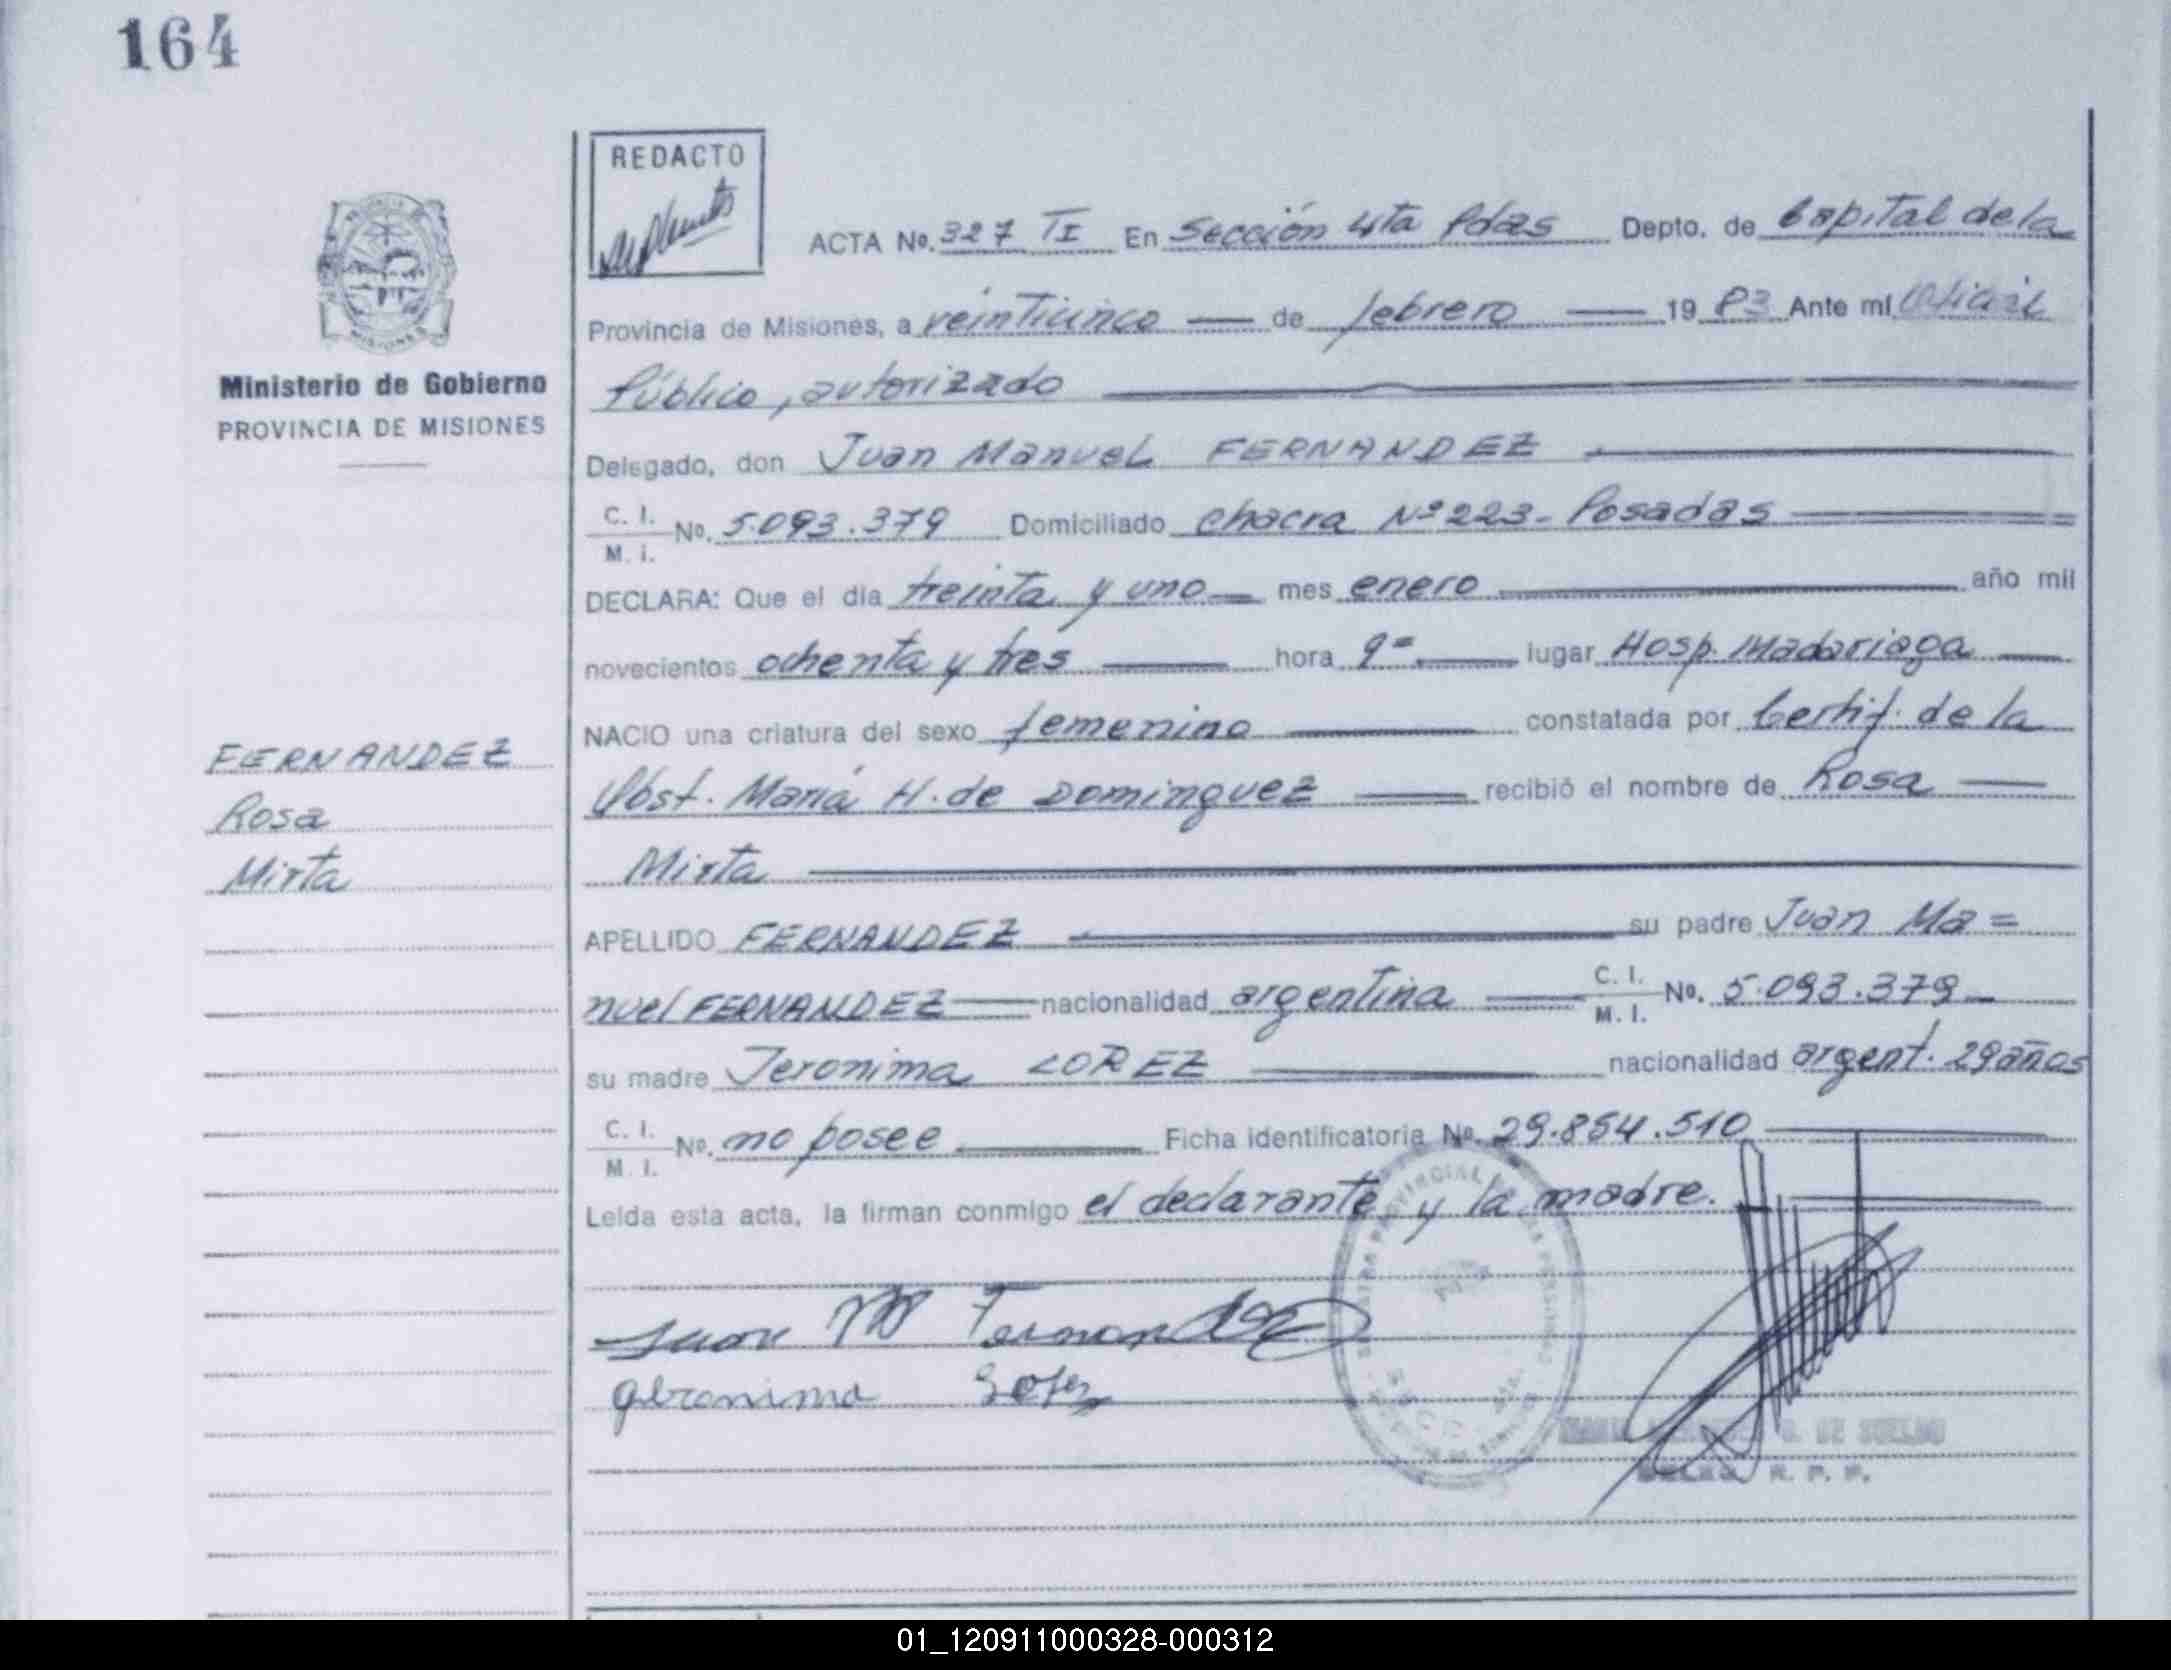 164
REDACTO
ACTA No. 327 TI En Sección 4ta Pdas Depto. de Capital de la
Provincia de Misiones, a veinticinco de febrero 1983 Ante mí Oficial
Público, autorizado
Ministerio de Gobierno
PROVINCIA DE MISIONES
Delegado, don Juan Manuel FERNANDEZ
C. I. M. I. No. 5.093.379 Domiciliado chacra Nº 223 - Posadas
DECLARA: Que el día treinta y uno mes enero año mil
novecientos ochenta y tres hora 9= lugar Hosp. Madariaga
NACIO una criatura del sexo femenino constatada por Certif. de la
Obst. María H. de Dominguez recibió el nombre de Rosa
Mirta
FERNANDEZ
Rosa
Mirta
APELLIDO FERNANDEZ su padre Juan Ma=
nuel FERNANDEZ nacionalidad argentina C. I. M. I. No. 5.093.379
su madre Jeronima LOPEZ nacionalidad argent. 29 años
C. I. M. I. No. no posee Ficha identificatoria No. 29.854.510
Leída esta acta, la firman conmigo el declarante y la madre.
Juan M Fernandez
Geronima Lopez
R. P. P.
01_120911000328-000312